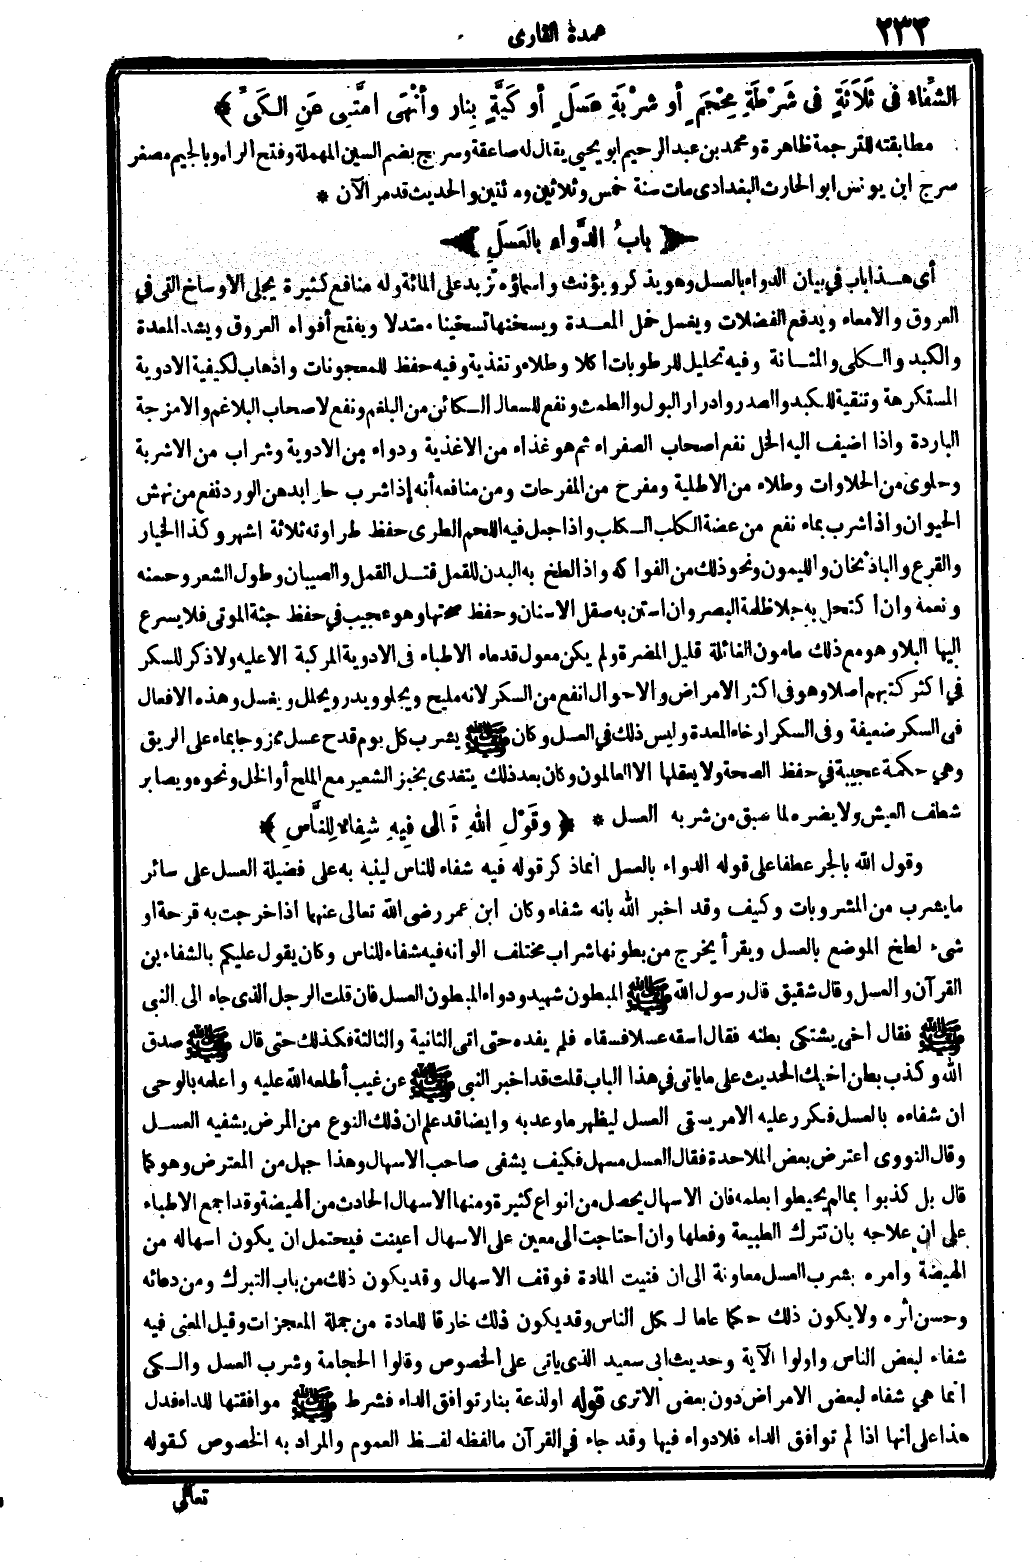 ٢٣٣
عمدة القارى
الشِّفَاءُ فى ثَلَاثَةٍ فى شَرْطَةِ مِحْجَمٍ أو شَرْبَةِ عَسَلٍ أو كَيَّةٍ بِنار وأنْهَى امَّتِى عَنِ الكَىِّ ﴾
مطابقته للترجمة ظاهرة ومحمد بن عبد الرحيم ابو يحيى يقال له صاعقة وسريج بضم السين المهملة وفتح الراء وبالجيم مصغر
سرج ابن يونس ابو الحارث البغدادى مات سنة خمس وثلاثين ومئتين والحديث قد مر الآن *
﴿ بابُ الدَّواءِ بالعَسَلِ ﴾
أى هذا باب في بيان الدواء بالعسل وهو يذكر ويؤنث واسماؤه تزيد على المائة وله منافع كثيرة يجلى الاوساخ التى في
العروق والامعاء ويدفع الفضلات ويغسل خمل المعدة ويسخنها تسخينا معتدلا ويفتح أفواه العروق ويشد المعدة
والكبد والكلى والمثانة وفيه تحليل للرطوبات اكلا وطلاء وتغذية وفيه حفظ للمعجونات واذهاب لكيفية الادوية
المستكرهة وتنقية للكبد والصدر وادرار البول والطمث ونفع للسعال الكائن من البلغم ونفع لاصحاب البلاغم والامزجة
الباردة واذا اضيف اليه الخل نفع اصحاب الصفراء ثم هو غذاء من الاغذية ودواء من الادوية وشراب من الاشربة
وحلوى من الحلاوات وطلاء من الاطلية ومفرح من المفرحات ومن منافعه أنه إذا شرب حارا بدهن الورد نفع من نهش
الحيوان واذا شرب بماء نفع من عضة الكلب الكلب واذا جعل فيه اللحم الطرى حفظ طراوته ثلاثة اشهر وكذا الخيار
والقرع والباذنجان والليمون ونحو ذلك من الفواكه واذا لطخ به البدن للقمل قتل القمل والصيبان وطول الشعر وحسنه
ونعمه وان اكتحل به جلا ظلمة البصر وان استن به صقل الاسنان وحفظ صحتها وهو عجيب في حفظ جثة الموتى فلا يسرع
اليها البلا وهو مع ذلك مامون الغائلة قليل المضرة ولم يكن معول قدماء الاطباء فى الادوية المركبة الا عليه ولا ذكر للسكر
في اكثر كتبهم أصلا وهو فى اكثر الامراض والاحوال انفع من السكر لانه مليح ويجلو ويدر ويحلل ويغسل وهذه الافعال
فى السكر ضعيفة وفى السكر ارخاء المعدة وليس ذلك في العسل وكان ﷺ يشرب كل يوم قدح عسل ممزوجا بماء على الريق
وهي حكمة عجيبة في حفظ الصحة ولا يعقلها الا العالمون وكان بعد ذلك يتغدى بخبز الشعير مع الملح أو الخل ونحوه ويصابر
شظف العيش ولا يضره لما سبق من شربه العسل * ﴿ وقَوْلِ اللهِ تَعالى فِيهِ شِفاءٌ لِلنَّاسِ ﴾
وقول الله بالجر عطفا على قوله الدواء بالعسل انما ذكر قوله فيه شفاء للناس لينبه به على فضيلة العسل على سائر
ما يشرب من المشروبات وكيف وقد اخبر الله بانه شفاء وكان ابن عمر رضى الله تعالى عنهما اذا خرجت به قرحة او
شىء لطخ الموضع بالعسل ويقرأ يخرج من بطونها شراب مختلف الوانه فيه شفاء للناس وكان يقول عليكم بالشفاءين
القرآن والعسل وقال شقيق قال رسول الله ﷺ المبطون شهيد ودواء المبطون العسل فان قلت الرجل الذى جاء الى النبى
ﷺ فقال أخى يشتكى بطنه فقال اسقه عسلا فسقاه فلم يفده حتى اتى الثانية والثالثة فكذلك حتى قال ﷺ صدق
الله وكذب بطن اخيك الحديث على ما ياتى في هذا الباب قلت قد اخبر النبى ﷺ عن غيب أطلعه الله عليه واعلمه بالوحى
ان شفاءه بالعسل فكرر عليه الامر يسقى العسل ليظهر ما وعد به وايضا قد علم ان ذلك النوع من المرض يشفيه العسل
وقال النووى أعترض بعض الملاحدة فقال العسل مسهل فكيف يشفى صاحب الاسهال وهذا جهل من المعترض وهو كما
قال بل كذبوا بمالم يحيطوا بعلمه فان الاسهال يحصل من انواع كثيرة ومنها الاسهال الحادث من الهيضة وقد اجمع الاطباء
على ان علاجه بان تترك الطبيعة وفعلها وان احتاجت الى معين على الاسهال أعينت فيحتمل ان يكون اسهاله من
الهيضة وأمره بشرب العسل معاونة الى ان فنيت المادة فوقف الاسهال وقد يكون ذلك من باب التبرك ومن دعائه
وحسن اثره ولا يكون ذلك حكما عاما لكل الناس وقد يكون ذلك خارقا للعادة من جملة المعجزات وقيل المعنى فيه
شفاء لبعض الناس واولوا الآية وحديث ابى سعيد الذى ياتى على الخصوص وقالوا الحجامة وشرب العسل والكى
انما هي شفاء لبعض الامراض دون بعض الا ترى قوله اولذعة بنار توافق الداء فشرط ﷺ موافقتها للداء فدل
هذا على أنها اذا لم توافق الداء فلا دواء فيها وقد جاء في القرآن ما لفظه لفظ العموم والمراد به الخصوص كقوله
تعالى